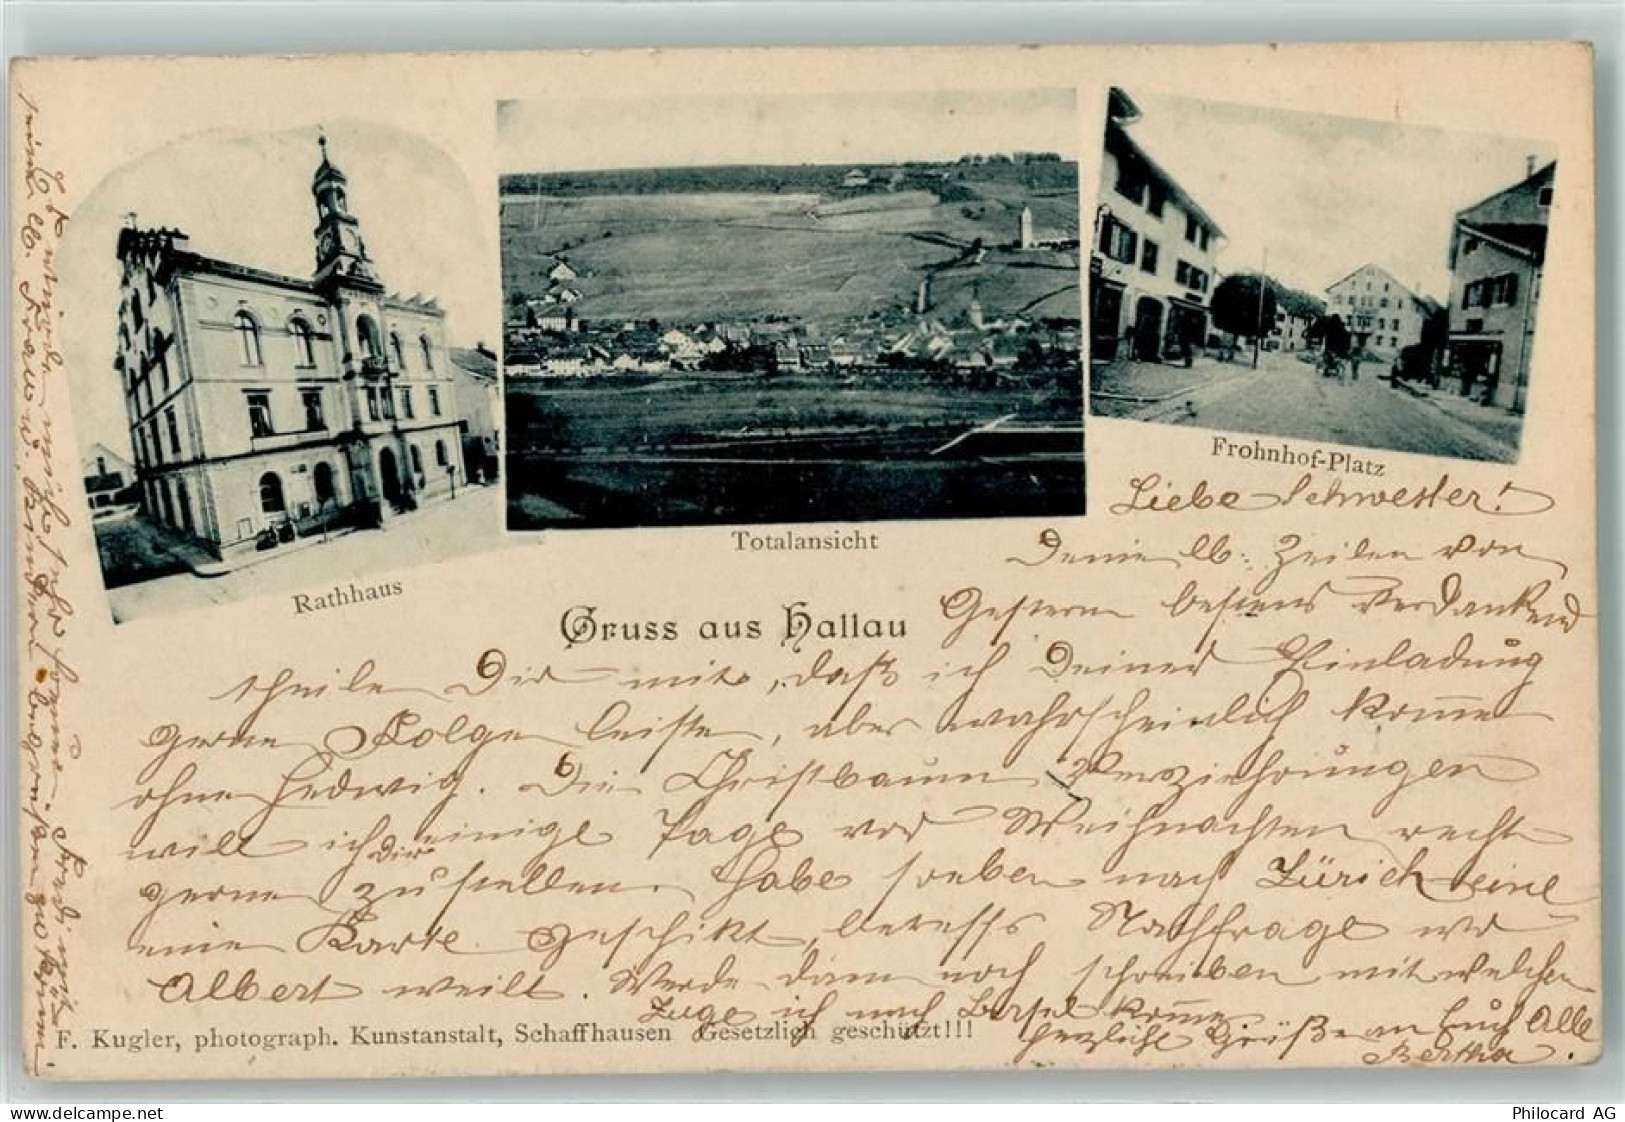 Rathhaus
Totalansicht
Frohnhof-Platz
Gruss aus Hallau
Liebe Schwester!
Deine lb. Zeilen von
Gestern bestens verdankend
theile Dir mit, daß ich Deiner Einladung
gerne Folge leiste, aber wahrscheinlich komme
ohne Hedwig. Die Christbaum Verziehrungen
will ich Dir einige Tage vor Weihnachten recht
gerne zustellen. Habe soeben nach Zürich eine
eine Karte geschikt, betreffs Nachfrage wo
Albert weilt. Werde dann noch schreiben mit welchem
Zuge ich nach Basel komme
herzliche Grüße an Euch Alle
Bertha.
Es freut mich sehr
seiner lb. Frau u. Kindern
F. Kugler, photograph. Kunstanstalt, Schaffhausen Gesetzlich geschützt!!!
www.delcampe.net
Philocard AG